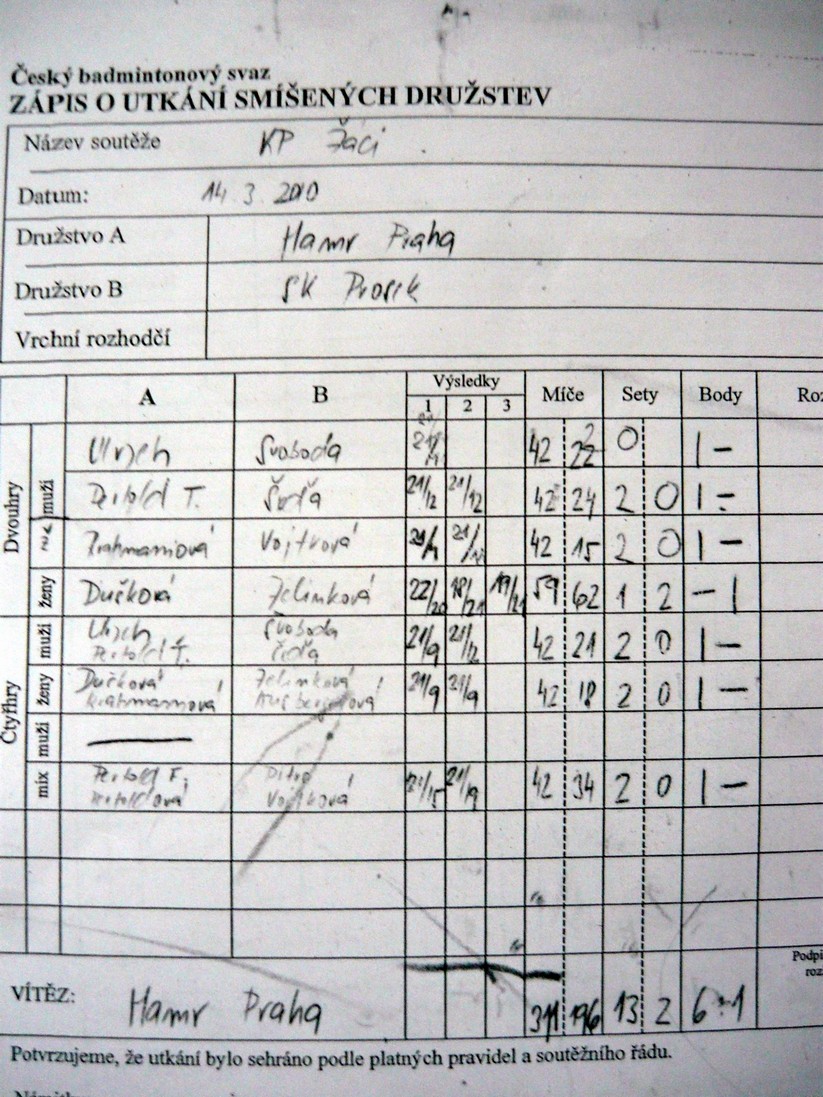 Český badmintonový svaz
ZÁPIS O UTKÁNÍ SMÍŠENÝCH DRUŽSTEV
Název soutěže KP Žáci
Datum: 14. 3. 2010
Družstvo A Hamr Praha
Družstvo B SK Prosek
Vrchní rozhodčí
A B Výsledky Míče Sety Body
1 2 3
Dvouhry
muži Svoboda 42 22 2 0 1 -
Pertold T. Šoďa 21/12 21/12 42 24 2 0 1 -
Vojtková 42 15 2 0 1 -
ženy Dučková Jelínková 22/20 18/21 19/21 59 62 1 2 - 1
Čtyřhry
muži Svoboda 21/9 21/12 42 21 2 0 1 -
Pertold T.
ženy Dučková Jelínková 21/9 21/9 42 18 2 0 1 -
muži
mix Pertold F. 21/15 21/19 42 34 2 0 1 -
Pertoldová Vojtková
VÍTĚZ: Hamr Praha 311 196 13 2 6 : 1
Potvrzujeme, že utkání bylo sehráno podle platných pravidel a soutěžního řádu.